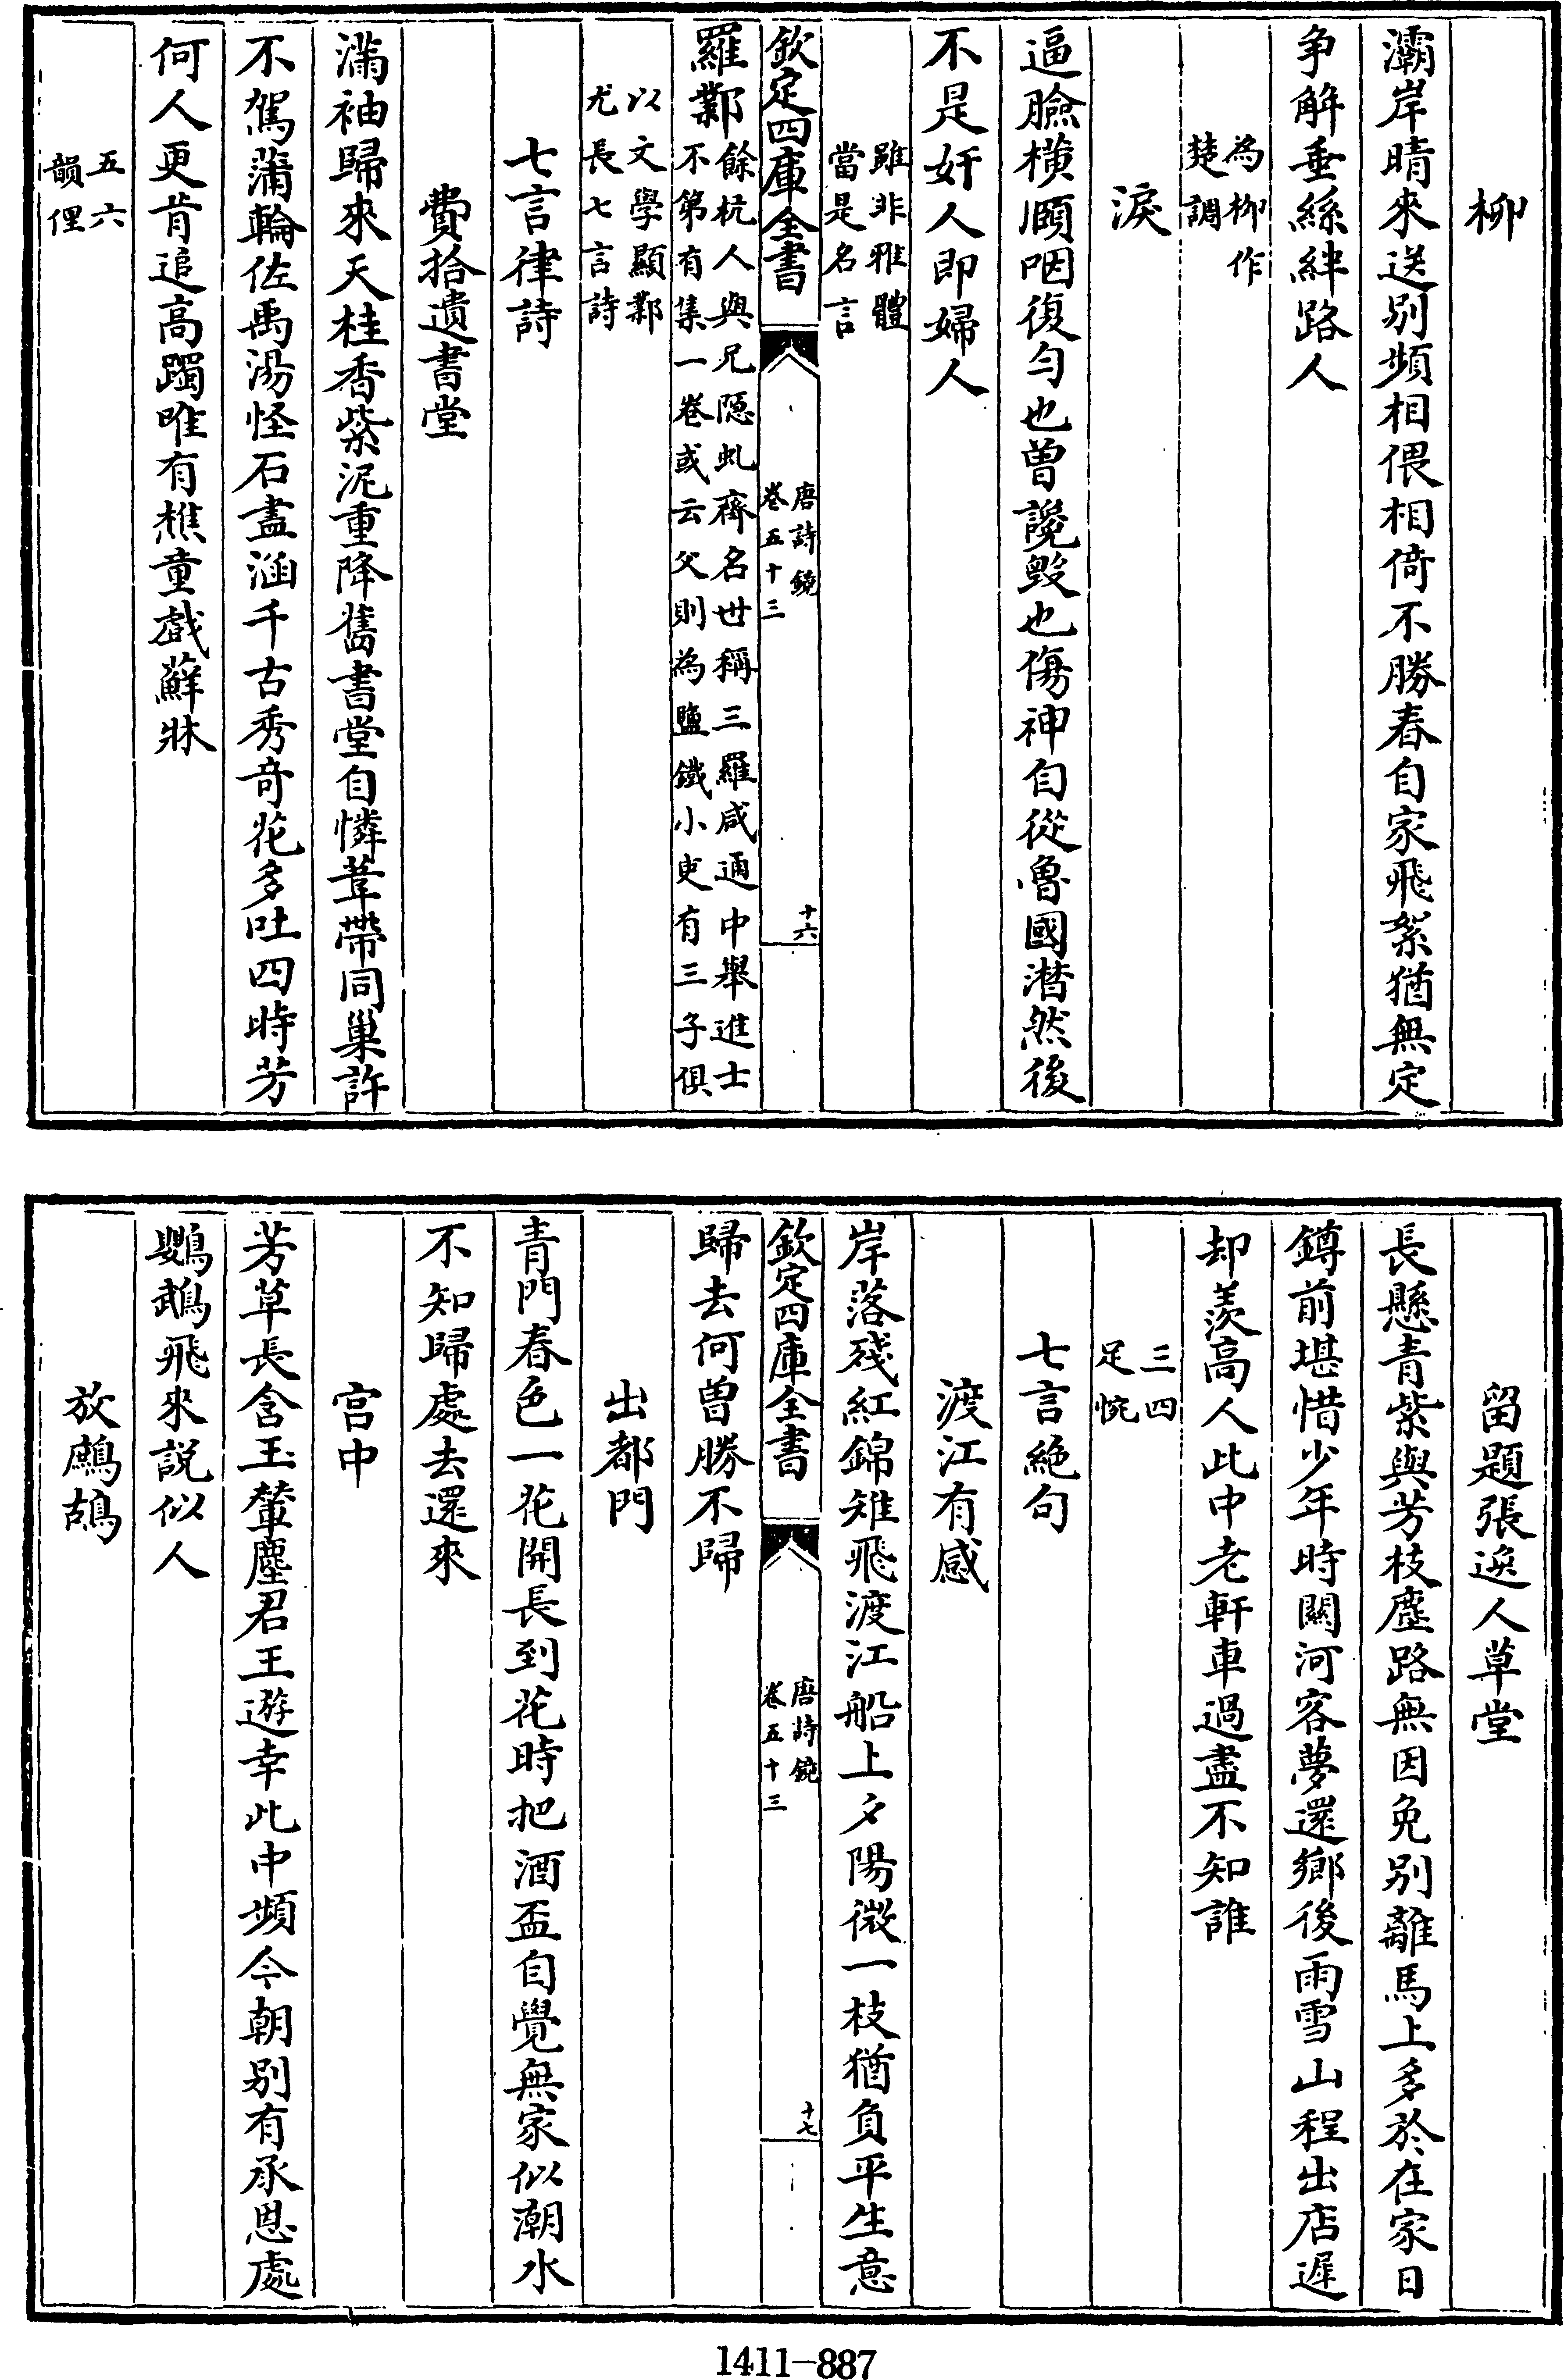 柳
灞岸晴來送别頻相偎相倚不勝春自家飛絮猶無定
争解垂絲絆路人
為柳作
楚調
淚
逼臉横頤咽復匀也曾讒毁也傷神自從魯國潸然後
不是奸人即婦人
雖非雅體
當是名言
欽定四庫全書
唐詩鏡
卷五十三
十六
羅鄴
餘杭人與兄隱虬齊名世稱三羅咸通中舉進士
不第有集一卷或云父則為鹽鐵小吏有三子俱
以文學顯鄴
尤長七言詩
七言律詩
費拾遺書堂
滿袖歸來天桂香紫泥重降舊書堂自憐葦帶同巢許
不駕蒲輪佐禹湯怪石盡涵千古秀奇花多吐四時芳
何人更肯追高躅唯有樵童戲蘚牀
五六
韻俚
留題張逸人草堂
長懸青紫與芳枝塵路無因免别離馬上多於在家日
鐏前堪惜少年時關河客夢還鄉後雨雪山程出店遲
却羡高人此中老軒車過盡不知誰
三四
足惋
七言絶句
渡江有感
岸落殘紅錦雉飛渡江船上夕陽微一枝猶負平生意
欽定四庫全書
唐詩鏡
卷五十三
十七
歸去何曾勝不歸
出都門
青門春色一花開長到花時把酒盃自覺無家似潮水
不知歸處去還來
宫中
芳草長含玉輦塵君王遊幸此中頻今朝别有承恩處
鸚鵡飛來説似人
放鷓鴣
1411—887